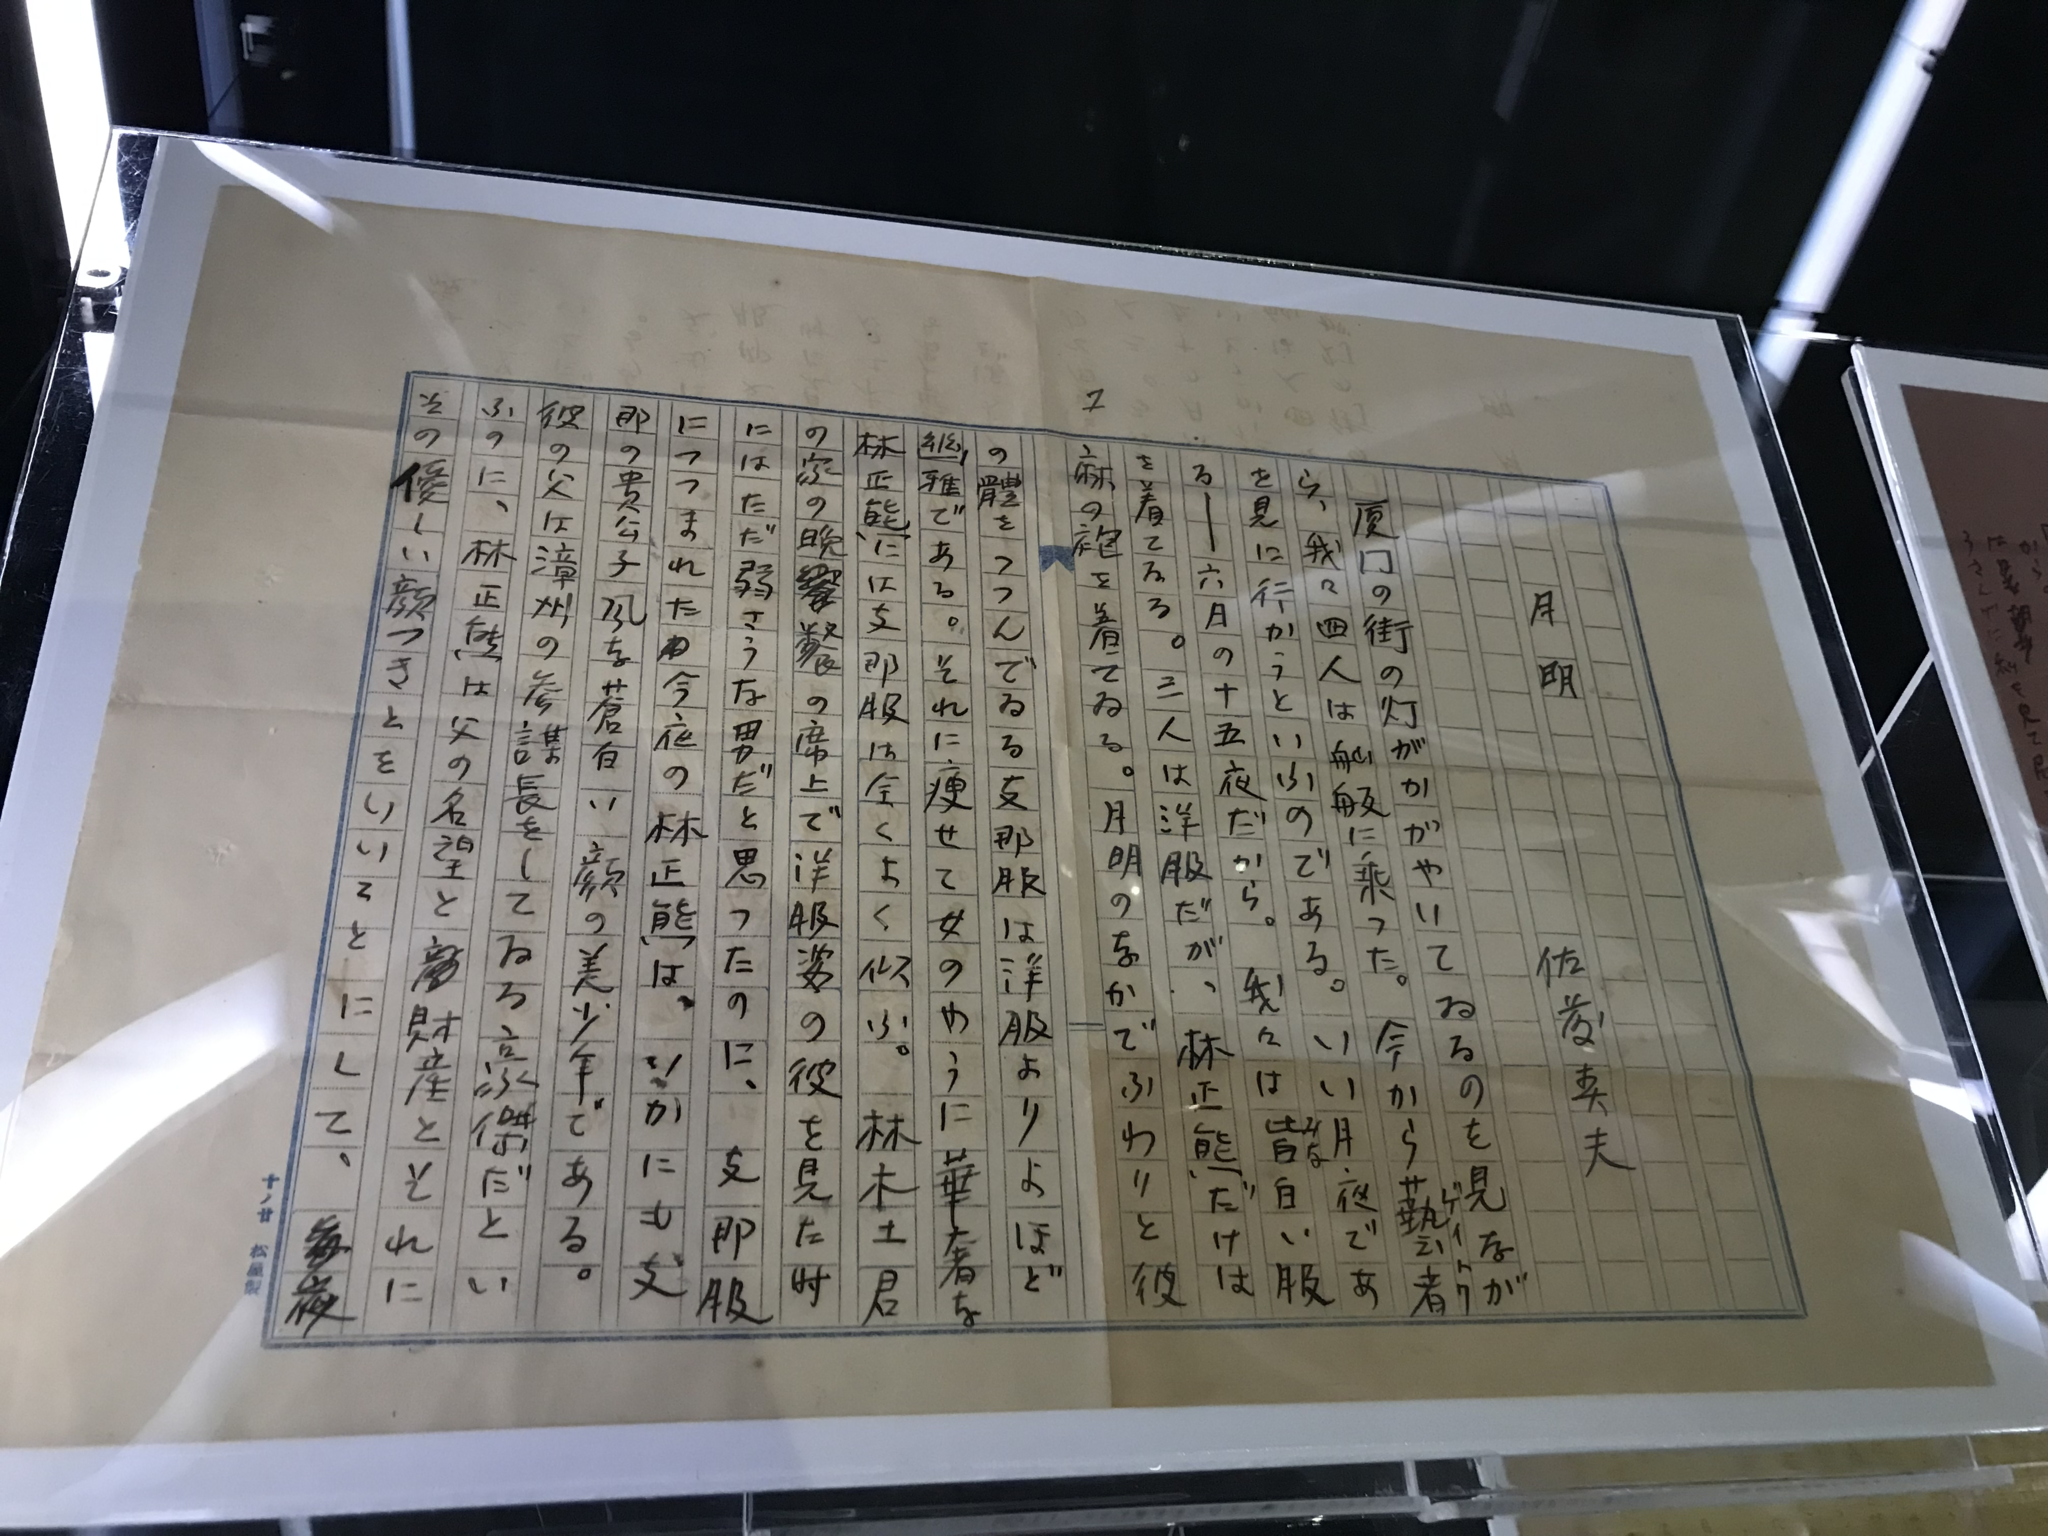 月明
佐藤春夫
厦門の街の灯がかがやいてゐるのを見なが
ら、我々四人は舢舨に乗つた。今から藝者
ゲイトワ
を見に行かうといふのである。いい月夜であ
る――六月の十五夜だから。我々は皆白い服
みな
を着てゐる。三人は洋服だが、林正熊だけは
麻の袍を着てゐる。月明のなかでふわりと彼
1
の體をつつんでゐる支那服は洋服よりよほど
雅である。それに痩せて女のやうに華奢な
林正熊には支那服は全くよく似ふ。林木土君
の家の晩餐の席上で洋服姿の彼を見た時
にはただ弱さうな男だと思つたのに、支那服
につつまれた今夜の林正熊は、いかにも支
那の貴公子風な蒼白い顔の美少年である。
彼の父は漳州の参謀長をしてゐる豪傑だとい
ふのに、林正熊は父の名望と財産とそれに
その優しい顔つきとをいいことにして、毎夜
十ノ廿 松屋製